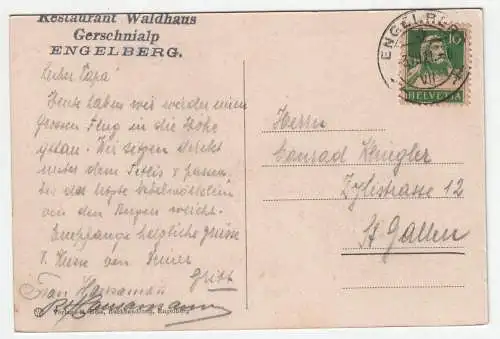 Restaurant Waldhaus
Gerschnialp
ENGELBERG.
Lieber Papa!
Heute haben wir wieder einen
grossen Flug in die Höhe
getan. Wir sitzen direkt
unter dem Titlis & passen
bis das letzte Nebelwölklein
von den Bergen weicht.
Empfange herzliche Grüsse
& Küsse von Deiner
Frau Hansamann
Hansamann
ENGELBERG
VII
10
HELVETIA
Herrn
Conrad Klingler
Zylistrasse 12
St. Gallen
Engelberg